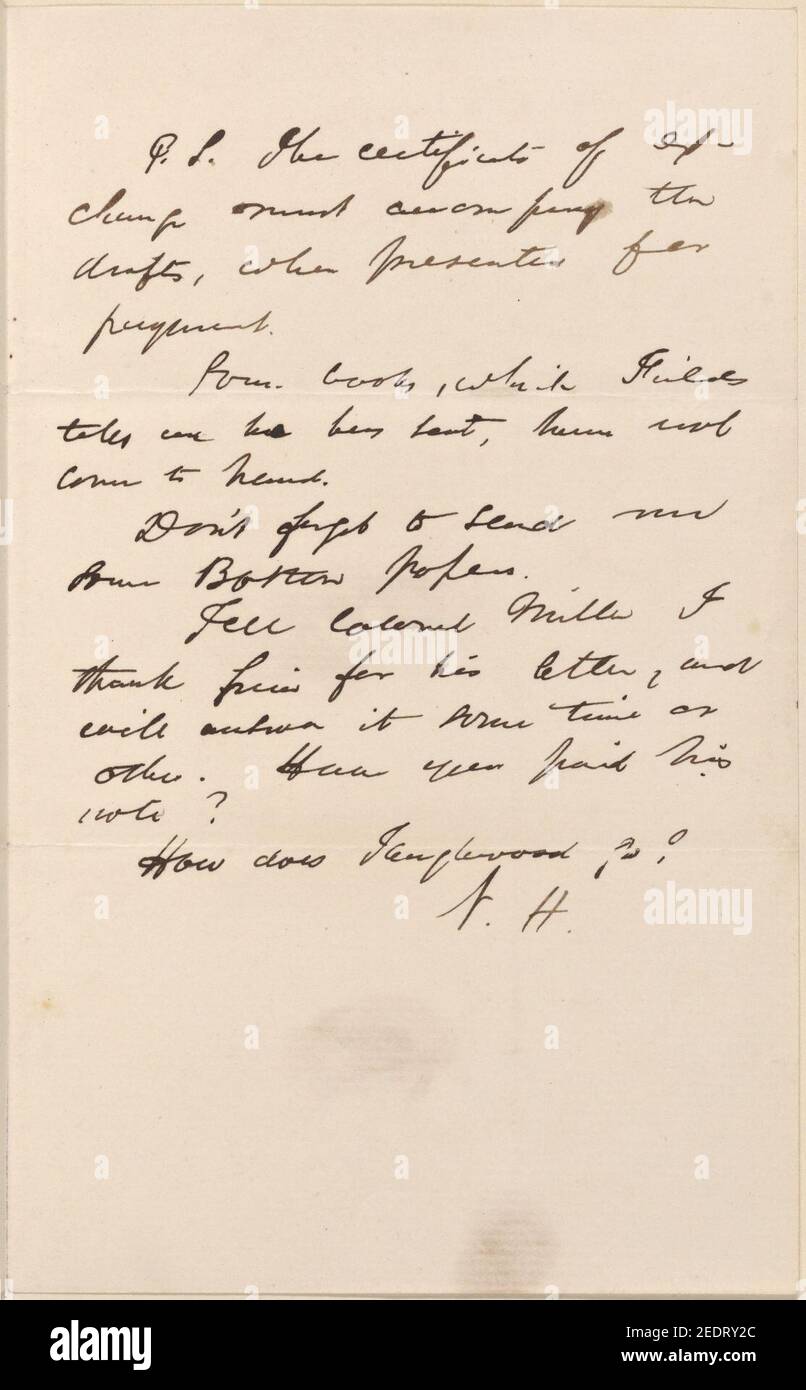 P.S. The certificate of ex-
change must accompany the
drafts, when presented for
payment.
Some books, which Fields
tells me he has sent, have not
come to hand.
Don't forget to send me
some Boston papers.
Tell Colonel Miller I
thank him for his letter, and
will answer it some time or
other. Have you paid his
note?
How does Tanglewood go?
N. H.
alamy
a
alamy
Image ID: 2EDRY2C
www.alamy.com